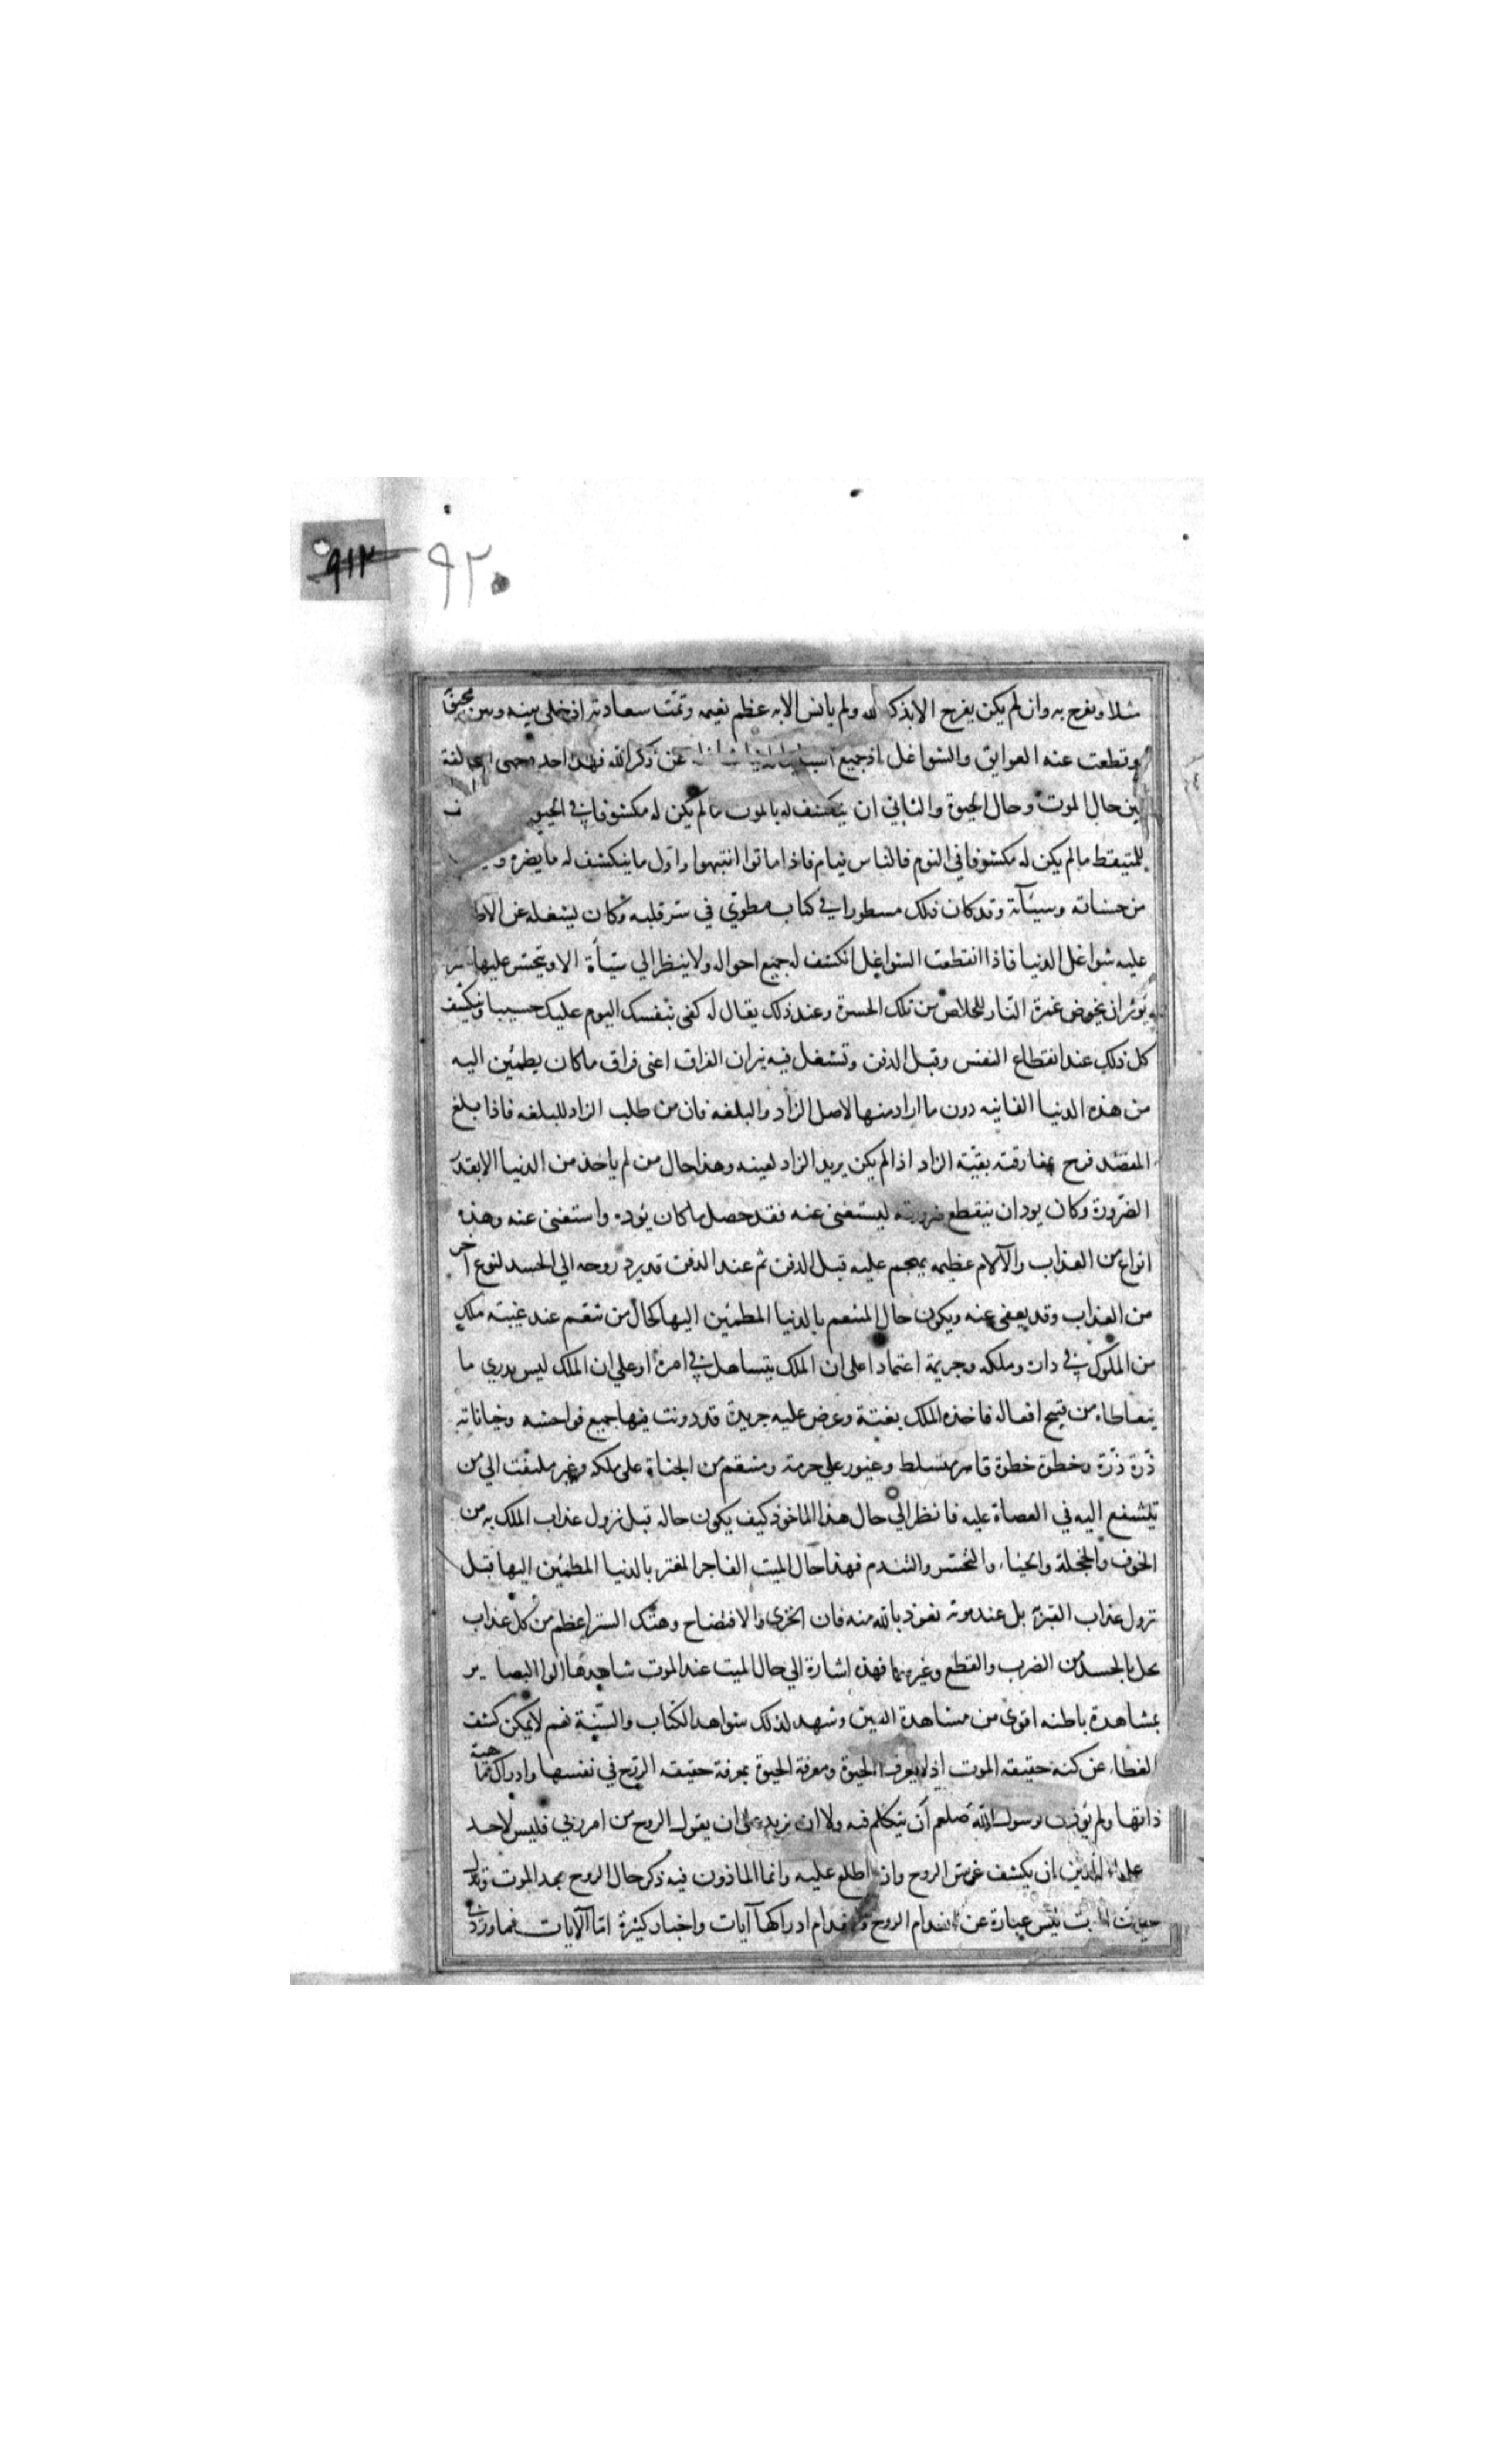 ٩١٣ ٩٢٠
مثلا ويفرح به وان لم يكن يفرح الا بذكر الله ولم يانس الا به عظم نعيمه وتمت سعادته اذ خلى بينه وبين محبوبه
وقطعت عنه العوايق والشواغل اذ جميع اسباب الدنيا شاغلة عن ذكر الله فهذا احد وجهى المخالفة
بين حال الموت وحال الحيوة والثاني ان ينكشف له بالموت ما لم يكن له مكشوفا في الحيوة
للمتيقظ ما لم يكن له مكشوفا في النوم فالناس نيام فاذا ماتوا انتبهوا واول ما ينكشف له ما يضره
من حسناته وسيئآته وقد كان ذلك مسطورا في كتاب مطوي في ستر قلبه وكان يشغله عن الاطلاع
عليه شواغل الدنيا فاذا انقطعت الشواغل انكشف له جميع احواله ولا ينظر الى سيئأة الا ويتحسر عليها
يوثر ان يخوض غمرة النار للخلاص من تلك الحسرة وعند ذلك يقال له كفى بنفسك اليوم عليك حسيبا وينكشف
كل ذلك عند انقطاع النفس وقبل الدفن وتشغل فيه نيران الفراق اعنى فراق ما كان يطمئن اليه
من هذه الدنيا الفانيه دون ما اراد منها لاصل الزاد والبلغه فان من طلب الزاد للبلغه فاذا بلغ
المقصد فرح بمفارقته بقيته الزاد اذا لم يكن يريد الزاد لعينه وهذا حال من لم ياخذ من الدنيا الا بقدر
الضرورة وكان يود ان ينقطع ضرورته ليستغنى عنه فقد حصل ما كان يوده واستغنى عنه وهذه
انواع من العذاب والآلام عظيمه يهجم عليه قبل الدفن ثم عند الدفن قد يرد روحه الى الجسد لنوع آخر
من العذاب وقد يعفى عنه ويكون حال المتنعم بالدنيا المطمئن اليها كحال من تنعم عند غيبته ملك
من الملوك في داره وملكه وجريمة اعتمادا على ان الملك يتساهل في امره او على ان الملك ليس يدري ما
يتعاطاه من قبيح افعاله فاخذه الملك بغتة وعرض عليه جريدة قد دونت فيها جميع فواحشه وخياناته
ذرة ذرة وخطوة خطوة قاهر متسلط وغيور على حرمه ومنتقم من الجناة على ملكه وغير ملتفت الى من
يتشفع اليه في العصاة عليه فانظر الى حال هذا الماخوذ كيف يكون حاله قبل نزول عذاب الملك به من
الخوف والخجلة والحياء والتحسر والتندم فهذا حال الميت الفاجر المغتر بالدنيا المطمئن اليها قبل
نزول عذاب القبر به بل عند موته نعوذ بالله منه فان الخزى والافتضاح وهتك الستر اعظم من كل عذاب
يحل بالجسد من الضرب والقطع وغيرهما فهذه اشارة الى حال الميت عند الموت شاهدها الوا البصاير
بمشاهدة باطنه اقوى من مشاهدة العين وشهد لذلك شواهد الكتاب والسنة نعم لا يمكن كشف
الغطاء عن كنه حقيقه الموت اذ لا يعرف الحيوة ومعرفة الحيوة بمعرفة حقيقه الروح في نفسها وادراك ماهية
ذاتها ولم يوذن لرسول الله صلعم ان يتكلم فيه ولا ان يزيد على ان يقول الروح من امر ربي فليس لاحد
علماء الدين ان يكشف عن سر الروح وان اطلع عليه وانما الماذون فيه ذكر حال الروح بعد الموت
الموت ليس عبارة عن انعدام الروح وانعدام ادراكها آيات واخبار كثيرة اما الآيات فما ورد في